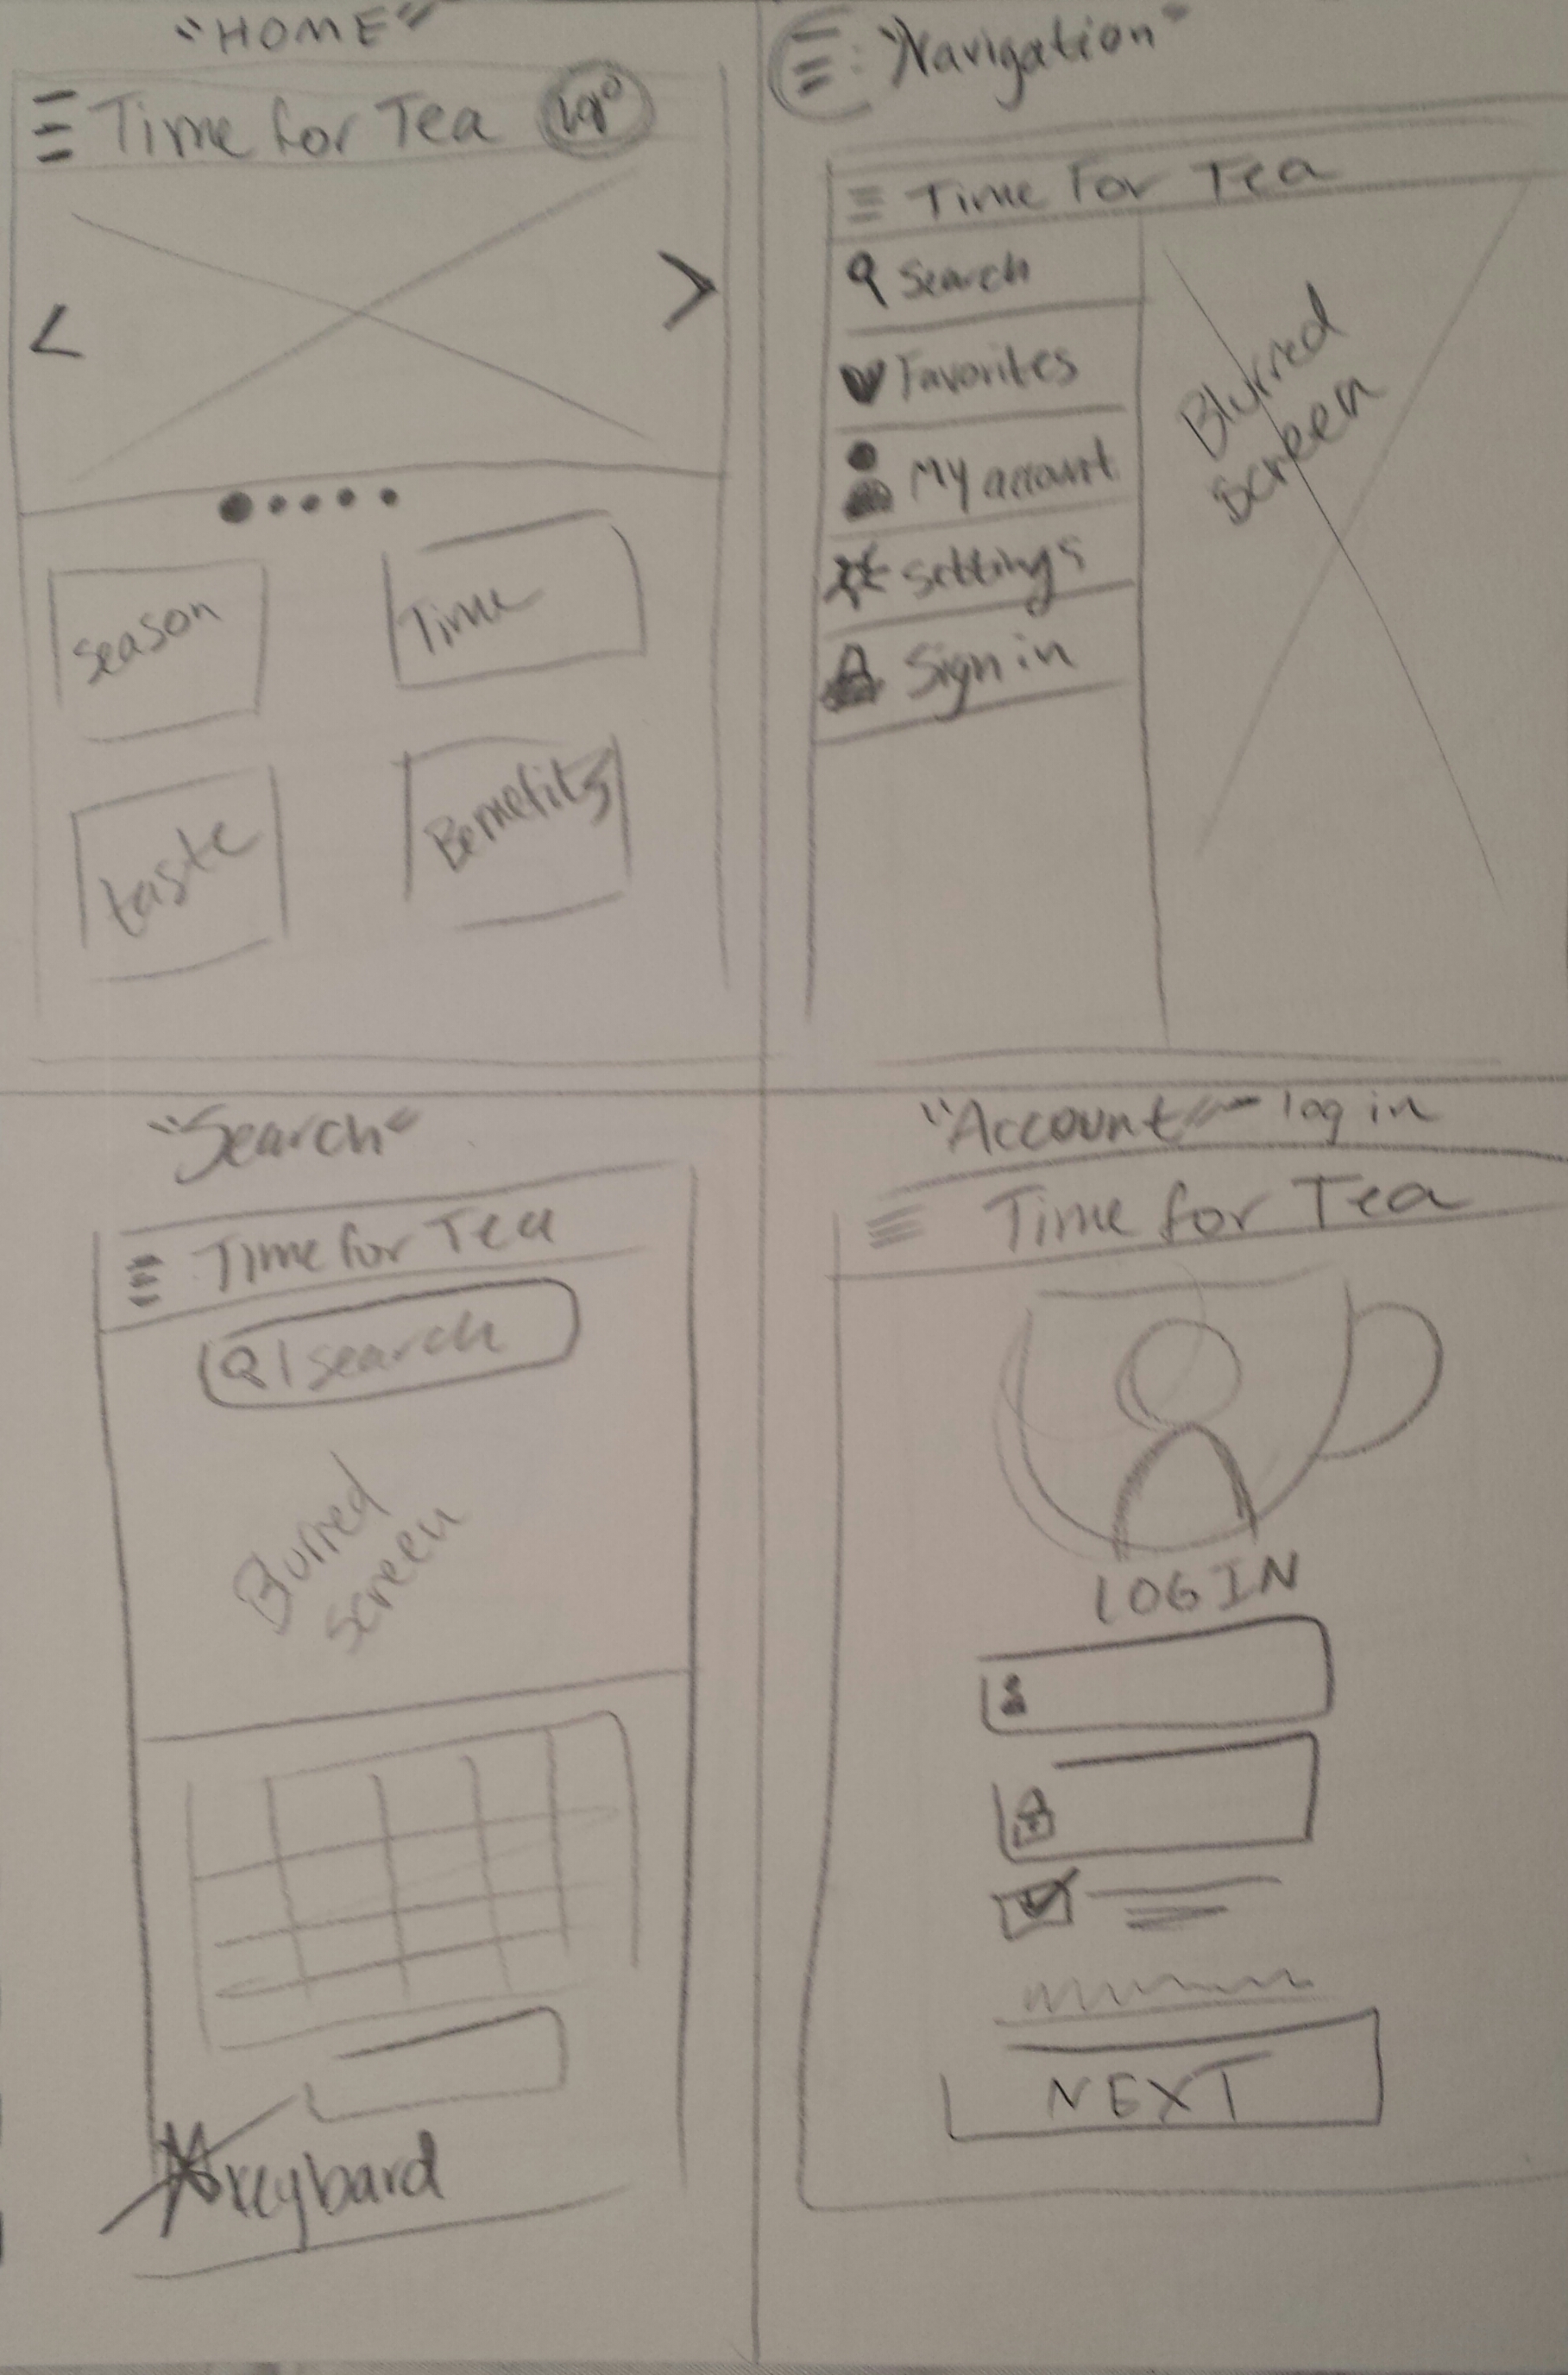 "HOME"
Time for Tea
Season
Time
taste
Bennefits
: "Navigation"
Time For Tea
Search
Favorites
My account
settings
Sign in
Blurred
screen
"Search"
Time for Tea
search
Blurred
screen
keybard
"Account" - log in
Time for Tea
LOGIN
NEXT